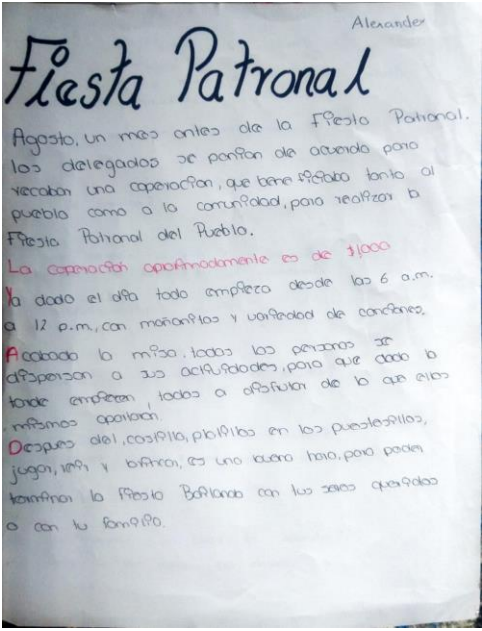 Alexander
Fiesta Patronal
Agosto, un mes antes de la Fiesta Patronal.
los delegados se ponían de acuerdo para
recabar una coperacion, que bene ficiaba tanto al
pueblo como a la comunidad, para realizar la
Fiesta Patronal del Pueblo.
La coperacion aproximadamente es de $1,000
Ya dado el dia todo empieza desde las 6 a.m.
a 12 p.m, con mañanitas y variedad de canciones.
Acabado la misa, todas las personas se
dispersan a sus actividades, para que dado la
tarde empiecen, todos a disfrutar de lo que ellos
mismos aportaron.
Despues del, castillo, platillos en los puestesillos,
jugar, reir y brincar, es una buena hora, para poder
terminar la fiesta Bailando con tus seres queridos
o con tu familia.